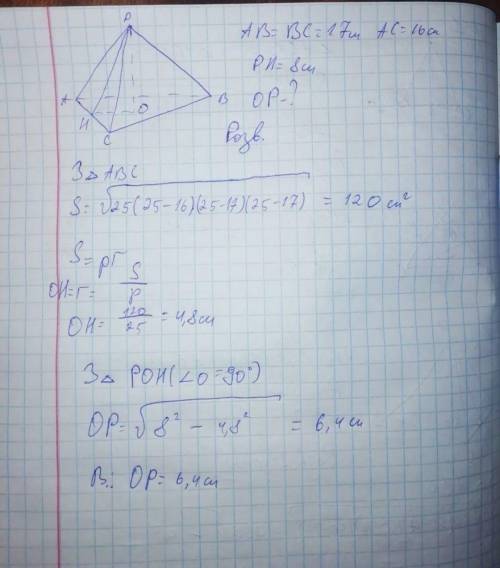 P
A
B
O
H
C
AB = BC = 17см AC = 16см
PH = 8см
OP - ?
Розв.
З △ ABC
S = √25(25-16)(25-17)(25-17) = 120 см²
S = pr
OH = r = S/p
OH = 120/25 = 4,8 см
З △ POH (∠O = 90°)
OP = √8² - 4,8² = 6,4 см
В.: OP = 6,4 см